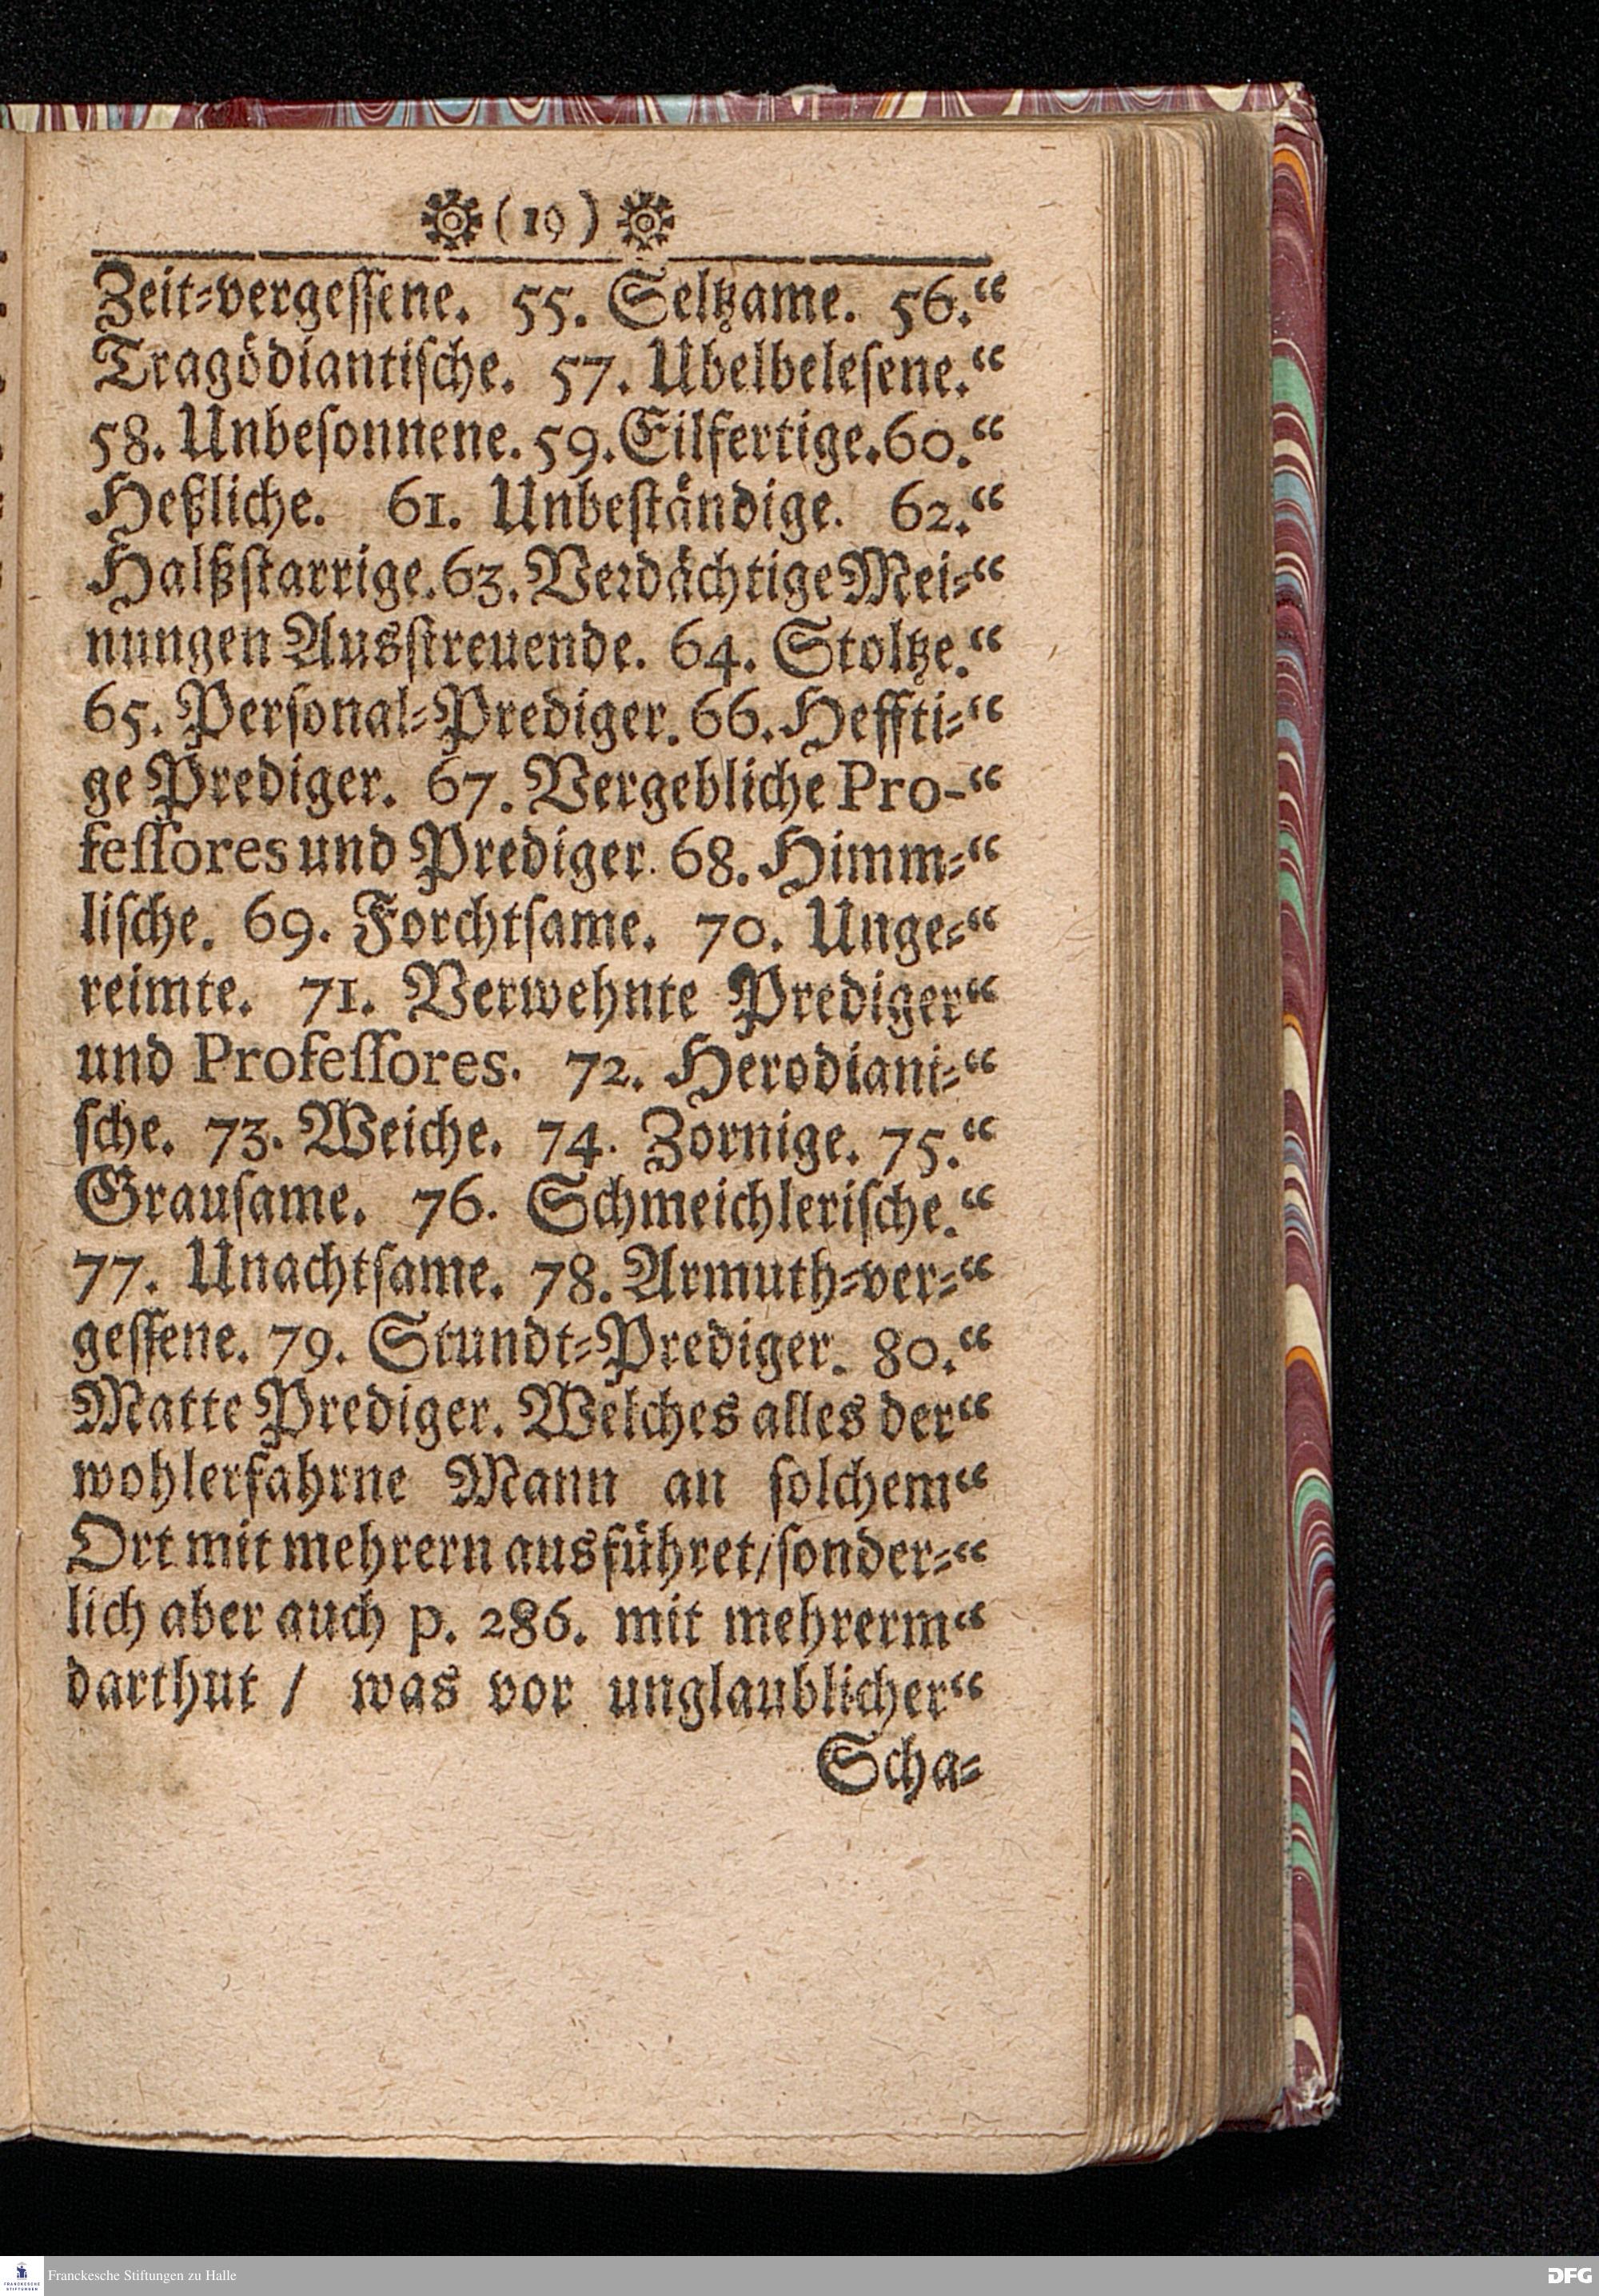 ( 19 )
Zeit-vergessene. 55. Seltzame. 56.“
Tragödiantische. 57. Ubelbelesene.“
58. Unbesonnene. 59. Eilfertige. 60.“
Heßliche. 61. Unbeständige. 62.“
Halßstarrige. 63. Verdächtige Mei-“
nungen Ausstreuende. 64. Stoltze.“
65. Personal-Prediger. 66. Heffti-“
ge Prediger. 67. Vergebliche Pro-“
fessores und Prediger. 68. Himm-“
lische. 69. Forchtsame. 70. Unge-“
reimte. 71. Verwehnte Prediger“
und Professores. 72. Herodiani-“
sche. 73. Weiche. 74. Zornige. 75.“
Grausame. 76. Schmeichlerische.“
77. Unachtsame. 78. Armuth-ver-“
gessene. 79. Stundt-Prediger. 80.“
Matte Prediger. Welches alles der“
wohlerfahrne Mann an solchem“
Ort mit mehrern ausführet/sonder-“
lich aber auch p. 286. mit mehrerm“
darthut / was vor unglaublicher“
Scha-
FRANCKESCHE STIFTUNGEN
Franckesche Stiftungen zu Halle
DFG